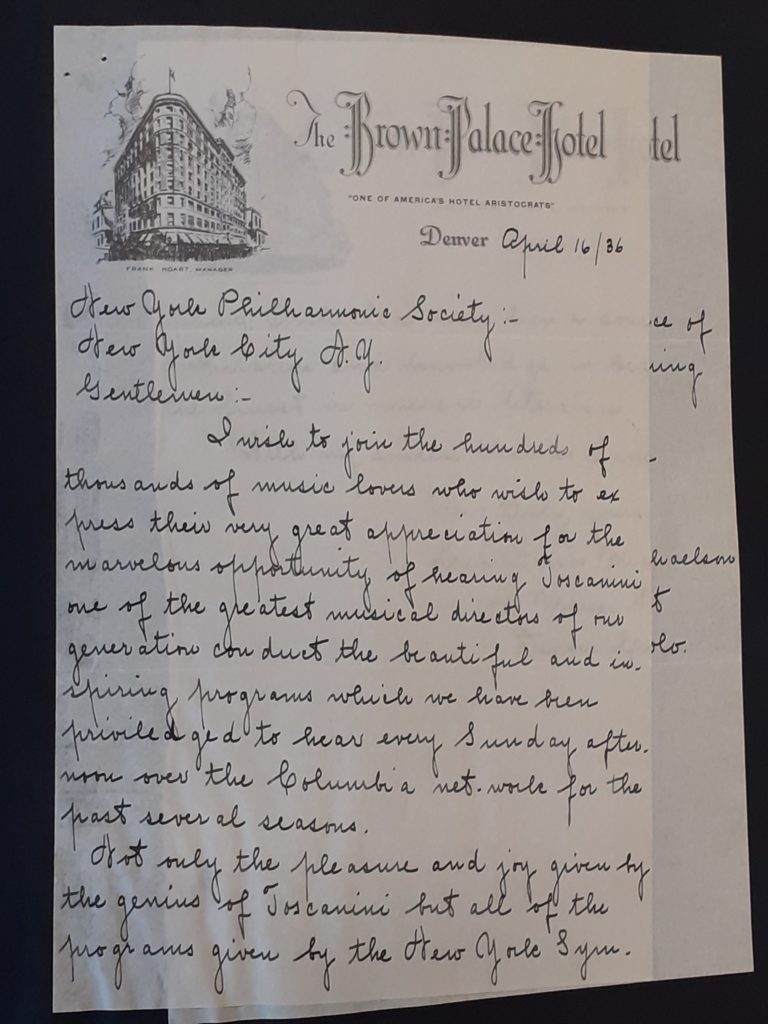 The Brown Palace Hotel
tel
"ONE OF AMERICA'S HOTEL ARISTOCRATS"
Denver April 16/36
FRANK HOART, MANAGER
New York Philharmonic Society:-
New York City N.Y.
Gentlemen:-
I wish to join the hundreds of
thousands of music lovers who wish to ex
press their very great appreciation for the
marvelous opportunity of hearing Toscanini
one of the greatest musical directors of our
generation conduct the beautiful and in-
spiring programs which we have been
priviledged to hear every Sunday after-
noon over the Columbia net-work for the
past several seasons.
Not only the pleasure and joy given by
the genius of Toscanini but all of the
programs given by the New York Sym-
ce of
ning
haelson
t
olo.